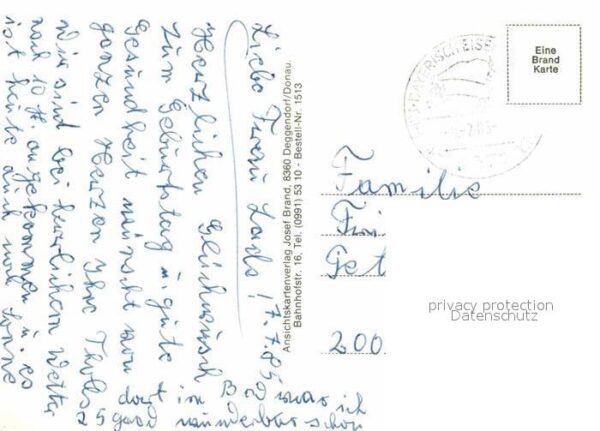 7.7.85
Liebe Frau Lada!
Herzlichen Glückwunsch
zum Geburtstag u. gute
Gesundheit wünscht von
ganzen Herzen Ihre
Wir sind bei herrlichem Wetter
nach 10 angekommen u. es
ist heute auch noch Sonne
25 grad wunderbar schön
dort in B war ich
Ansichtskartenverlag Josef Brand, 8360 Deggendorf/Donau.
Bahnhofstr. 16, Tel. (0991) 53 10 - Bestell-Nr. 1513
BAYERISCH EISEN
7.85-
Eine
Brand
Karte
Familie
Get
200
privacy protection
Datenschutz